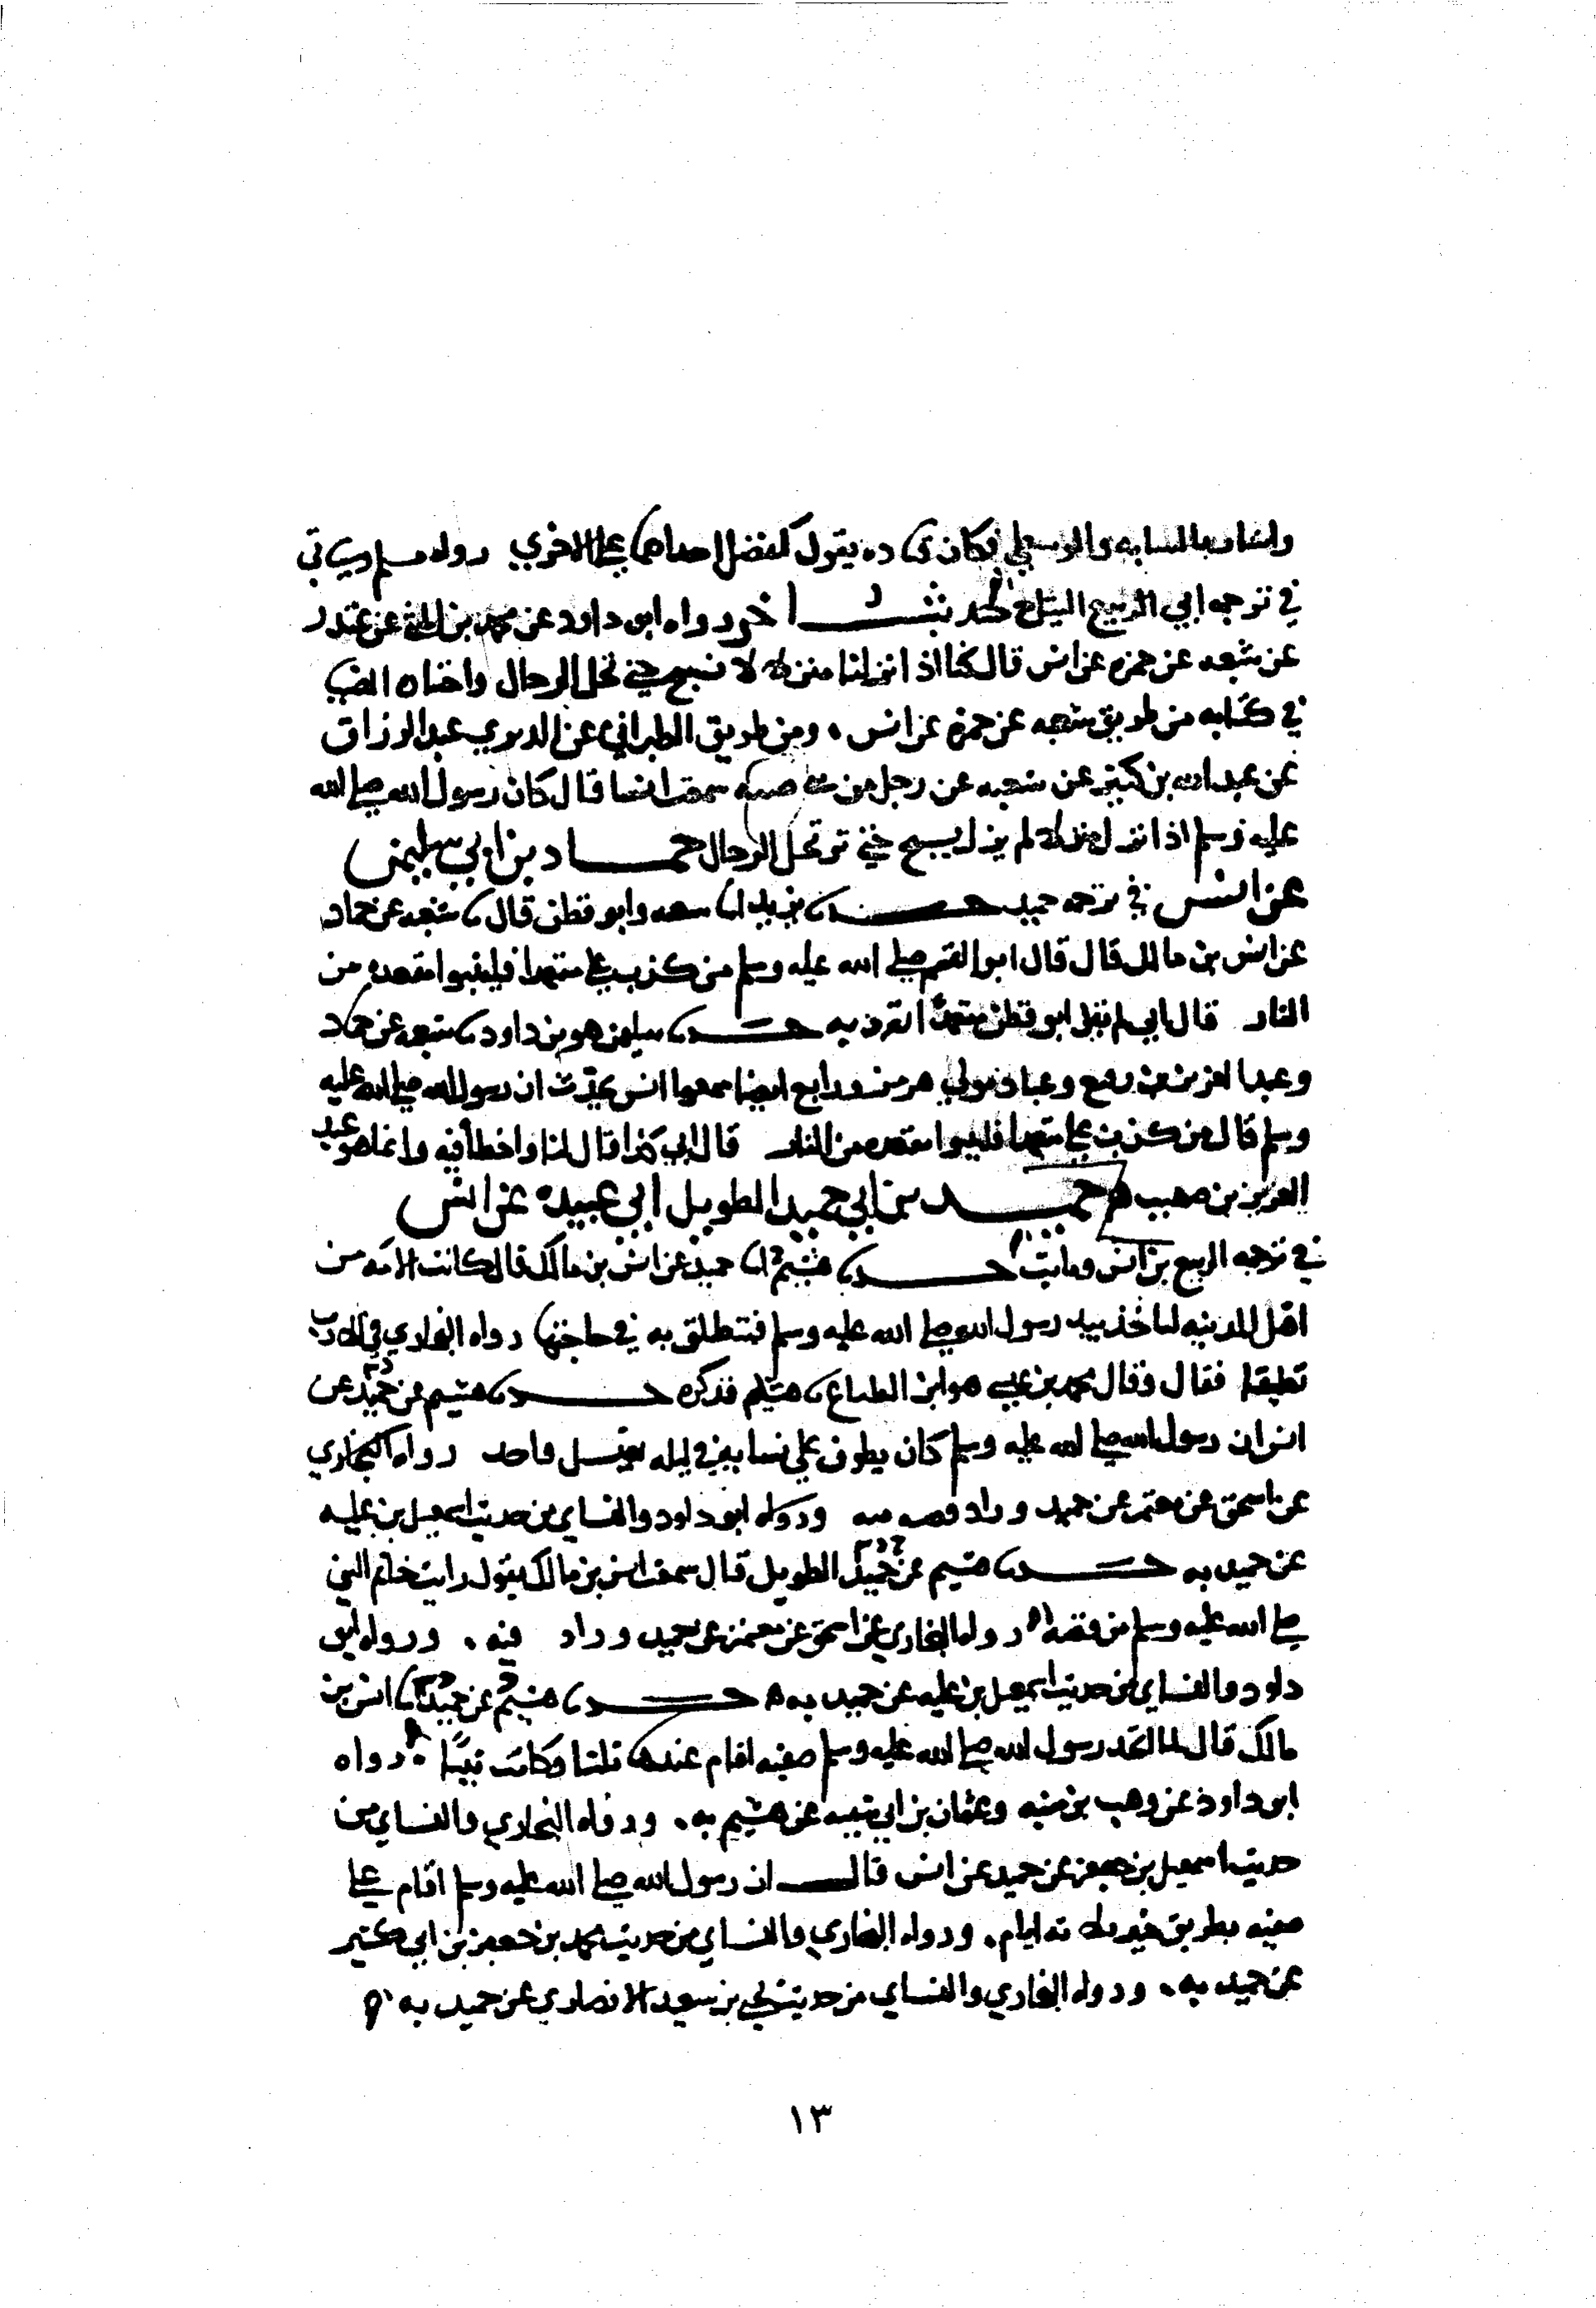 واشار بالسبابه والوسطي فكان قتاده يقول كفضل احداهما علي الاخري رواه مسلم وسياتي
في ترجمه ابي التياح حديث اخر رواه ابو داود عن محمد بن المثني عن غندر
عن شعبه عن حمزه عن انس قال كنا اذا نزلنا منزلا لا نسبح حتي تحل الرحال واختاره الضيا
في كتابه من طريق شعبه عن حمزه عن انس، ومن طريق الطبراني عن الدبري عبد الرزاق
عن عبد الله بن كثير عن شعبه عن رجل من صبيه سمعت انسا قال كان رسول الله صلي الله
عليه وسلم اذا نزل منزلا لم يزل يسبح حتي تحل الرحال حماد بن ابي سليمن
عن انس في ترجمه حميد حد يزيد انا شعبه وابو قطن قال شعبه عن حماد
عن انس بن مالك قال قال ابو القسم صلي الله عليه وسلم من كذب علي متعمدا فليتبوا مقعده من
النار قال ابي لم يقل ابو قطن متعمدا تفرد به حد سليمن هو بن داود شعبه عن حماد
وعبد العزيز بن رفيع وعتاب مولي هرمز ورابع ايضا سمعوا انس يحدث ان رسول الله صلي الله عليه
وسلم قال من كذب علي متعمدا فليتبوا مقعده من النار قال ابي كذا قال لنا واخطا فيه وانما هو عبد
العزيز بن صهيب حميد بن ابي حميد الطويل ابي عبيده عن انس
في ترجمه الربيع بن انس وثابت حد هشيم انا حميد عن انس بن مالك قال كانت الامه من
اهل المدينه لتاخذ بيد رسول الله صلي الله عليه وسلم فتنطلق به في حاجتها رواه البخاري في الادب
تعليقا فقال وقال محمد بن عيسي هو ابن الطباع هشيم فذكره حد هشيم عن حميد عن
انس ان رسول الله صلي الله عليه وسلم كان يطوف علي نسايه في ليله بغسل واحد رواه البخاري
عن اسحق عن معتمر عن حميد وزاد قصه ورواه ابو داود والنساي من حديث اسمعيل بن عليه
عن حميد به حد هشيم عن حميد الطويل قال سمعت انس بن مالك يقول رايت خاتم النبي
صلي الله عليه وسلم من فضه رواه البخاري عن اسحق عن معتمر عن حميد وزاد فيه، ورواه ابو
داود والنساي من حديث اسمعيل بن عليه عن حميد به حد هشيم عن حميد انا انس بن
مالك قال لما اتخذ رسول الله صلي الله عليه وسلم صفيه اقام عندها ثلثا وكانت ثيبا رواه
ابو داود عن وهب بن منبه وعثمان بن ابي شيبه عن هشيم به، ورواه البخاري والنساي من
حديث اسمعيل بن جعفر عن حميد عن انس قال ان رسول الله صلي الله عليه وسلم اقام علي
صفيه بطريق خيبر ثلاثه ايام، ورواه البخاري والنساي من حديث محمد بن جعفر بن ابي كثير
عن حميد به، ورواه البخاري والنساي من حديث يحيي بن سعيد الانصاري عن حميد به
١٣